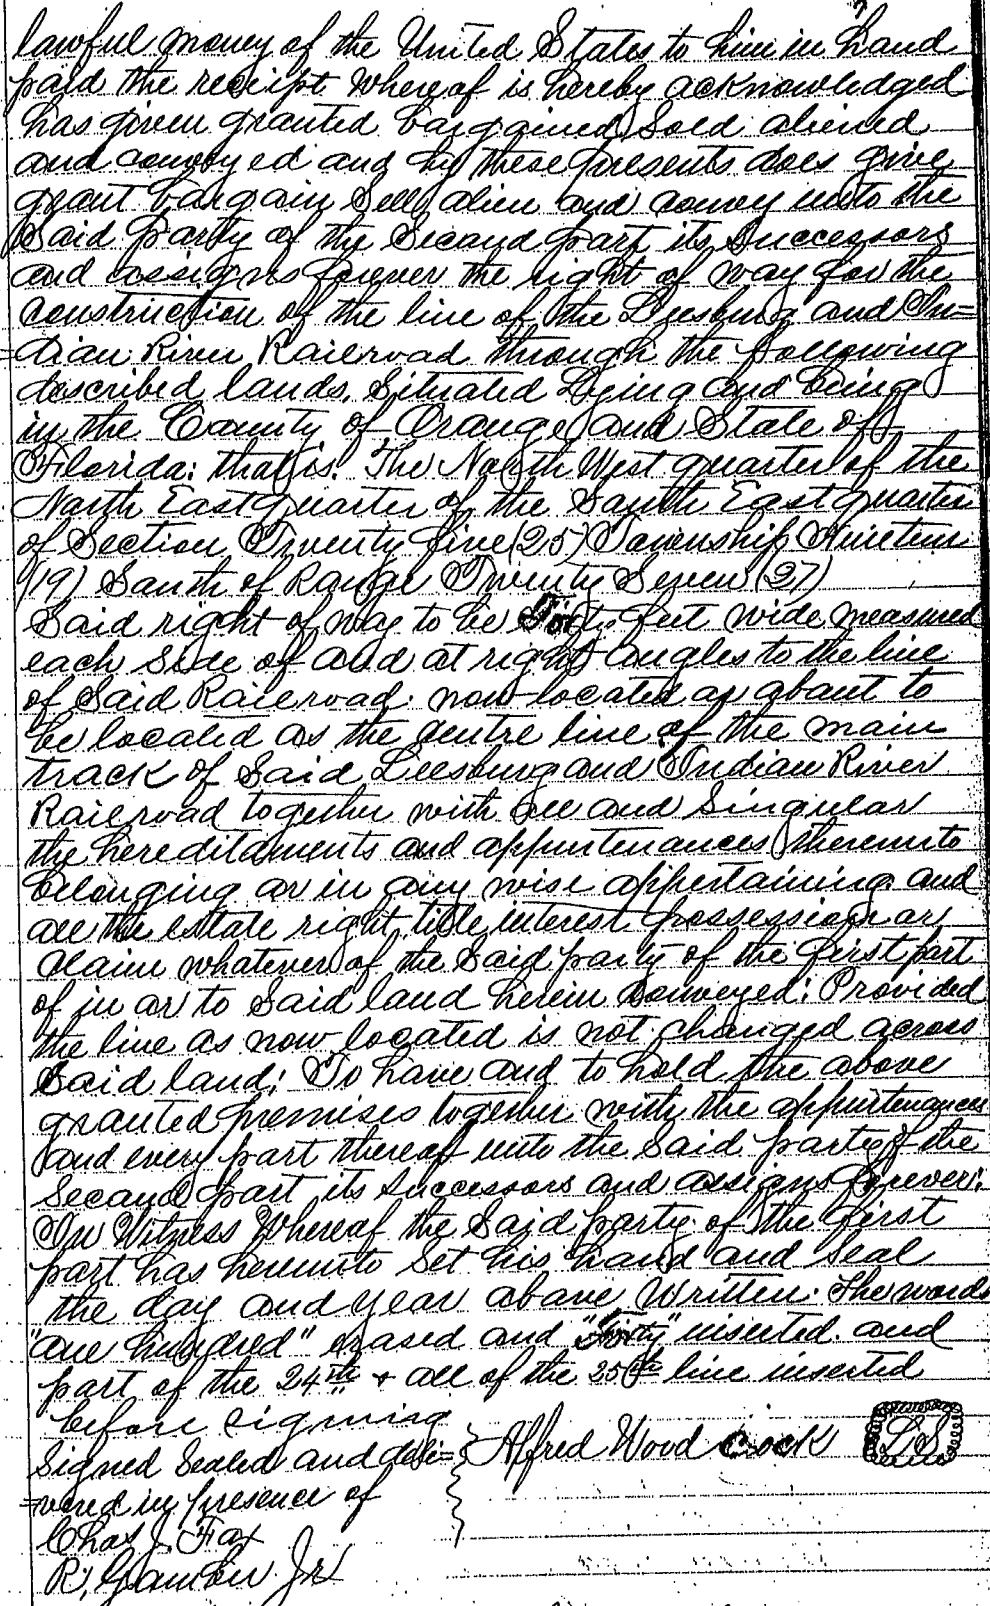 lawful money of the United States to him in hand
paid the receipt whereof is hereby acknowledged
has given granted bargained sold aliened
and conveyed and by these presents does give
grant bargain sell alien and convey unto the
said party of the second part its successors
and assigns forever the right of way for the
construction of the line of the Leesburg and In=
=dian River Railroad through the following
described lands, situated Lying and being
in the County of Orange and State of
Florida: that is: The North West quarter of the
North East quarter of the South East quarter
of Section Twenty five (25) Township Nineteen
(19) South of Range Twenty Seven (27)
Said right of way to be feet wide measured
each side of and at right angles to the line
of Said Railroad now located or about to
be located as the centre line of the main
track of Said Leesburg and Indian River
Railroad together with all and Singular
the hereditaments and appurtenances thereunto
belonging or in any wise appertaining and
all the estate right, title, interest possession or
claim whatever of the Said party of the first part
of in or to Said land herein conveyed: Provided
the line as now located is not changed across
Said land: To have and to hold the above
granted premises together with the appurtenances
and every part thereof unto the Said party of the
Second part its successors and assigns forever:
In Witness Whereof the Said party of the first
part has hereunto set his hand and seal
the day and year above Written. The words
"one hundred" erased and "forty" inserted and
part of the 24th & all of the 25th line inserted
before signing
Signed Sealed and deli= Alfred Wood cock LS
=vered in presence of
Chas J. Fox
R, Gamble Jr